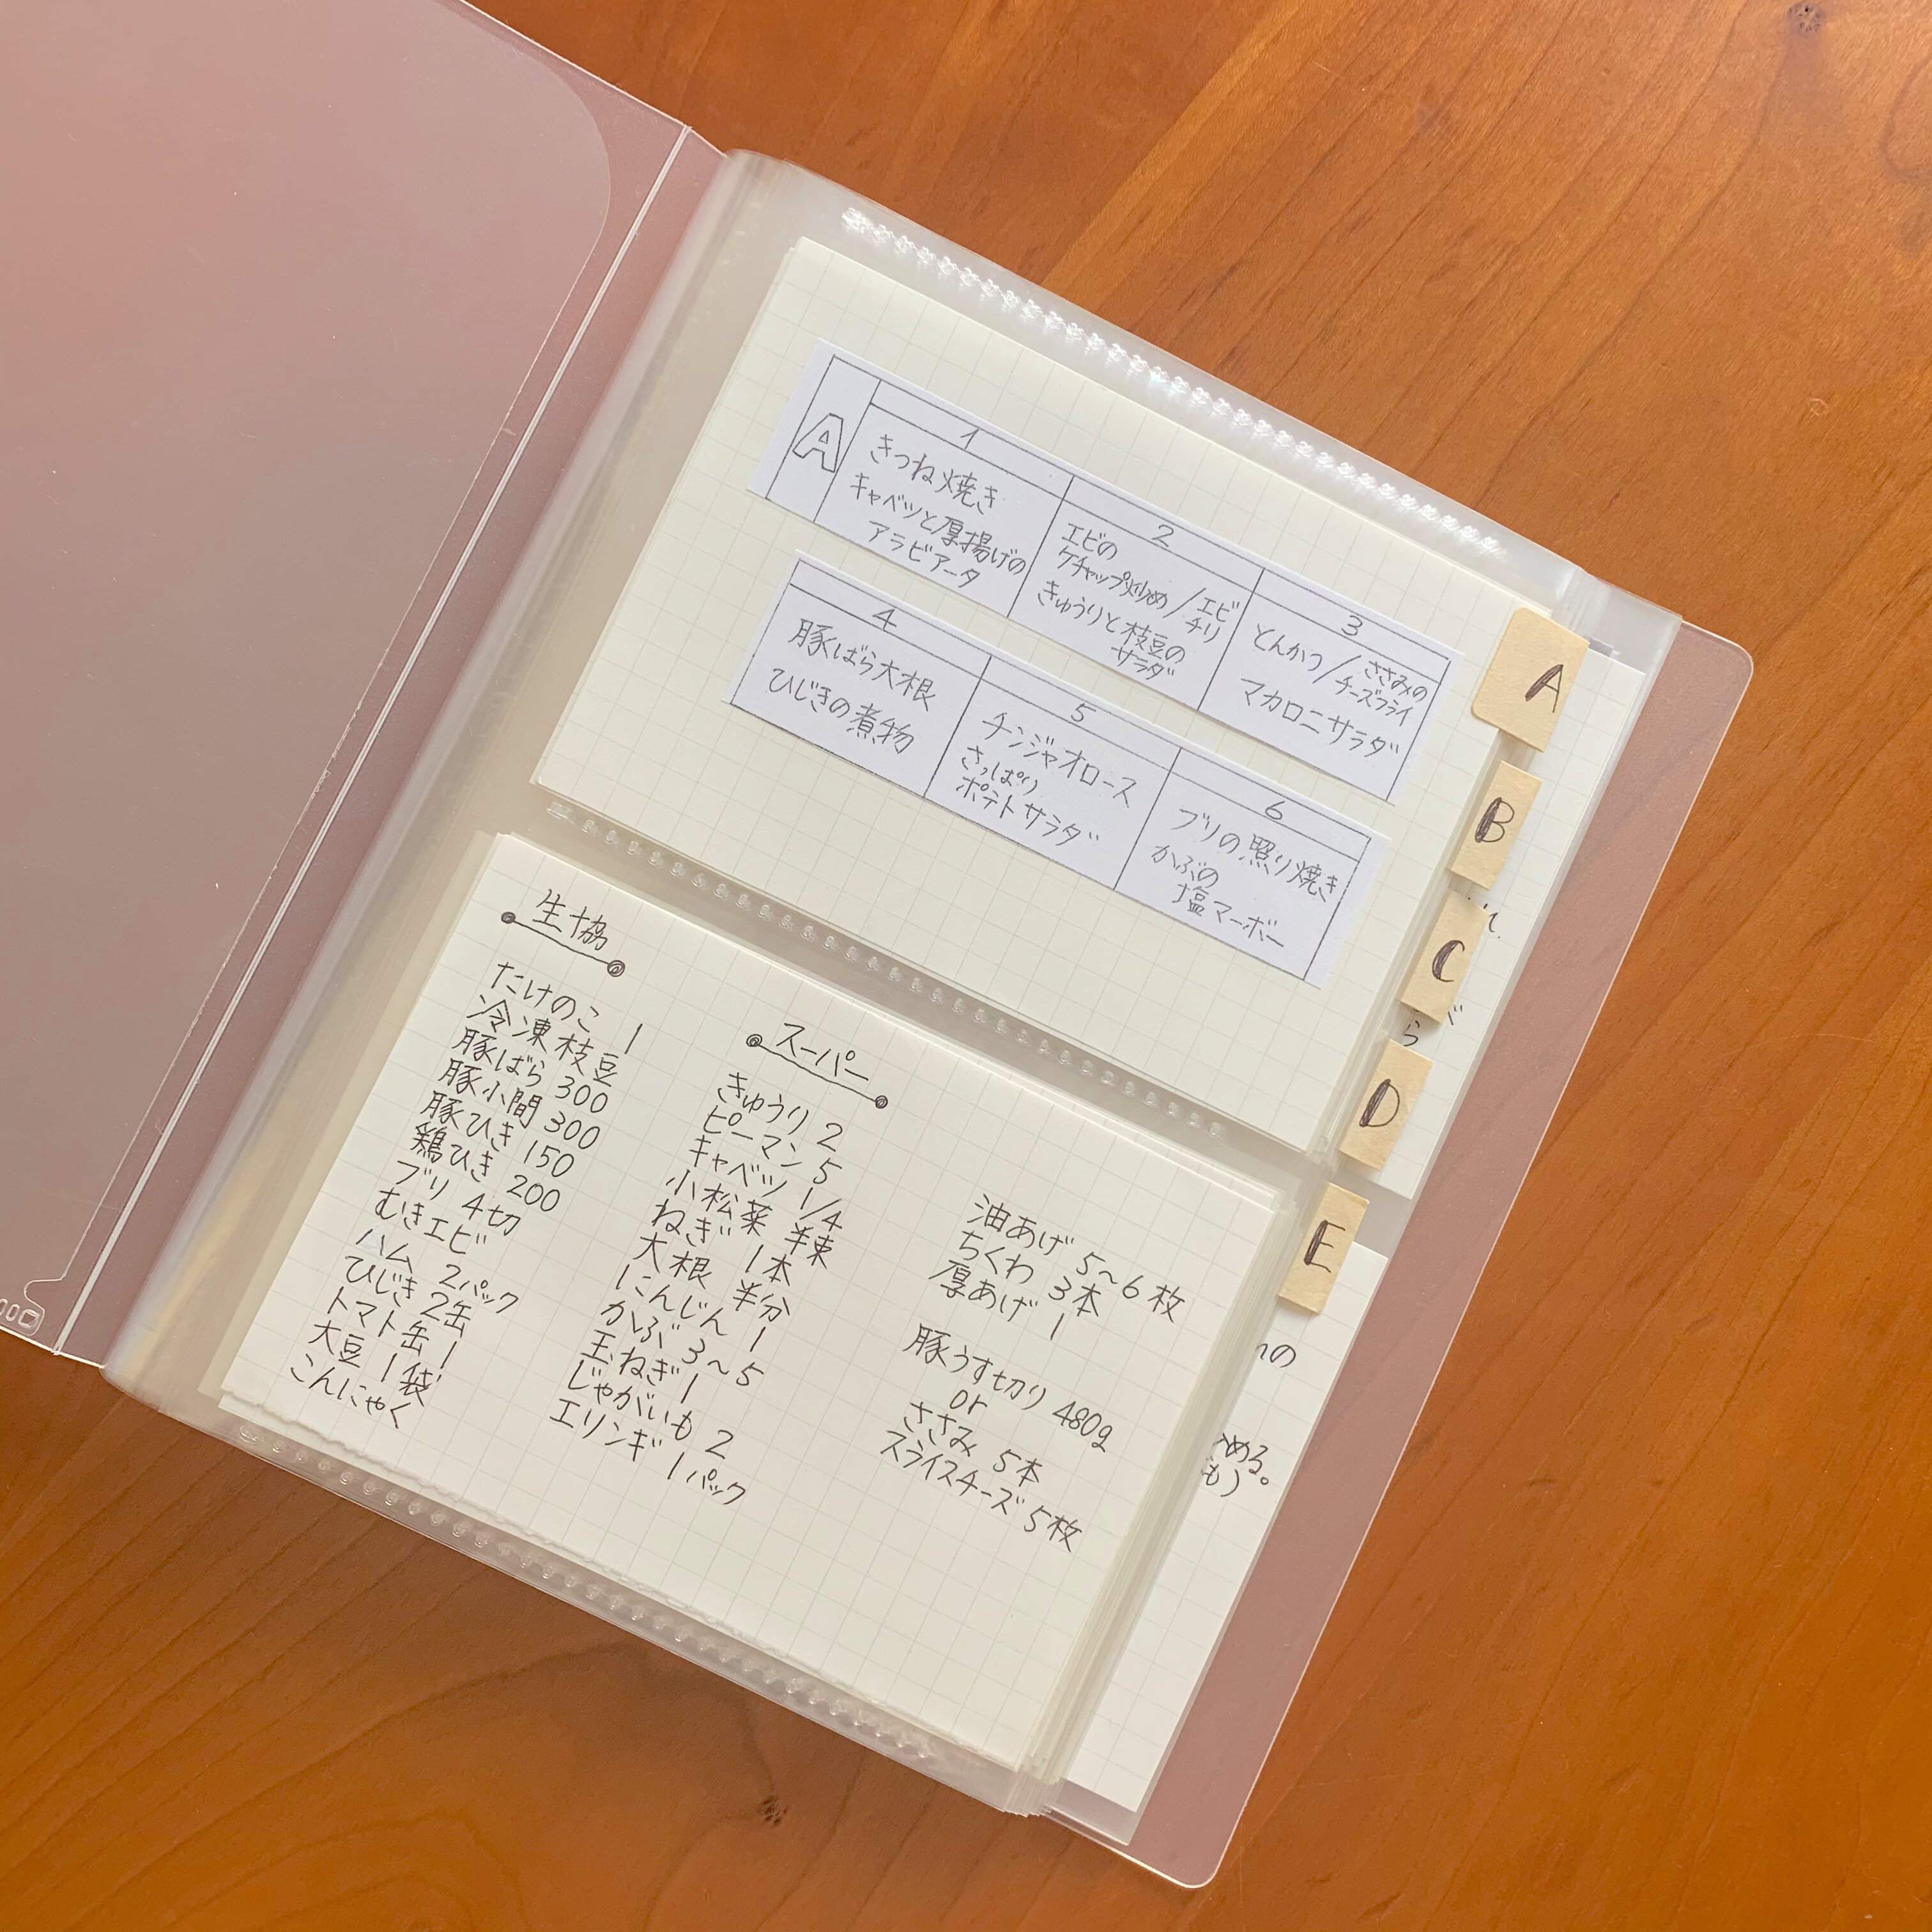 A
1
きつね焼き
キャベツと厚揚げの
アラビアータ
2
エビの
ケチャップ炒め/エビ
チリ
きゅうりと枝豆の
サラダ
3
とんかつ/ささみの
チーズフライ
マカロニサラダ
4
豚ばら大根
ひじきの煮物
5
チンジャオロース
さっぱり
ポテトサラダ
6
ブリの照り焼き
かぶの
塩マーボー
A
B
C
D
E
生協
たけのこ 1
冷凍枝豆
豚ばら 300
豚小間 300
豚ひき 150
鶏ひき 200
ブリ 4切
むきエビ
ハム 2パック
ひじき 2缶
トマト缶 1
大豆 1袋
こんにゃく
スーパー
きゅうり 2
ピーマン 5
キャベツ 1/4
小松菜 半束
ねぎ 1本
大根 半分
にんじん 1
かぶ 3〜5
玉ねぎ 1
じゃがいも 2
エリンギ 1パック
油あげ 5〜6枚
ちくわ 3本
厚あげ 1
豚うす切り 480g
or
ささみ 5本
スライスチーズ 5枚
の
める。
も)